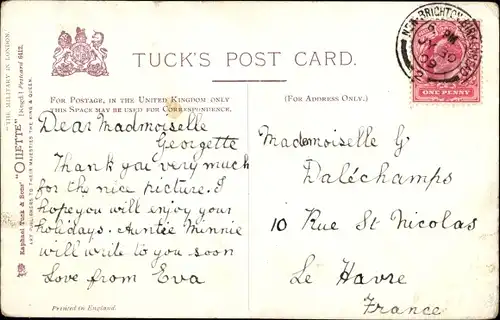 TUCK'S POST CARD.
FOR POSTAGE, IN THE UNITED KINGDOM ONLY
THIS SPACE MAY BE USED FOR CORRESPONDENCE.
(FOR ADDRESS ONLY.)
"THE MILITARY IN LONDON."
Raphael Tuck & Sons' "OILETTE" [Regd.] Postcard 6412.
ART PUBLISHERS TO THEIR MAJESTIES THE KING & QUEEN.
Dear Madmoiselle
Georgette
Thank you very much
for the nice picture. I
hope you will enjoy your
holidays. Auntie Minnie
will write to you soon
Love from Eva
Printed in England.
NEW BRIGHTON BIRKENHEAD
ONE PENNY
Mademoiselle G
Daléchamps
10 Rue St Nicolas
Le Havre
France